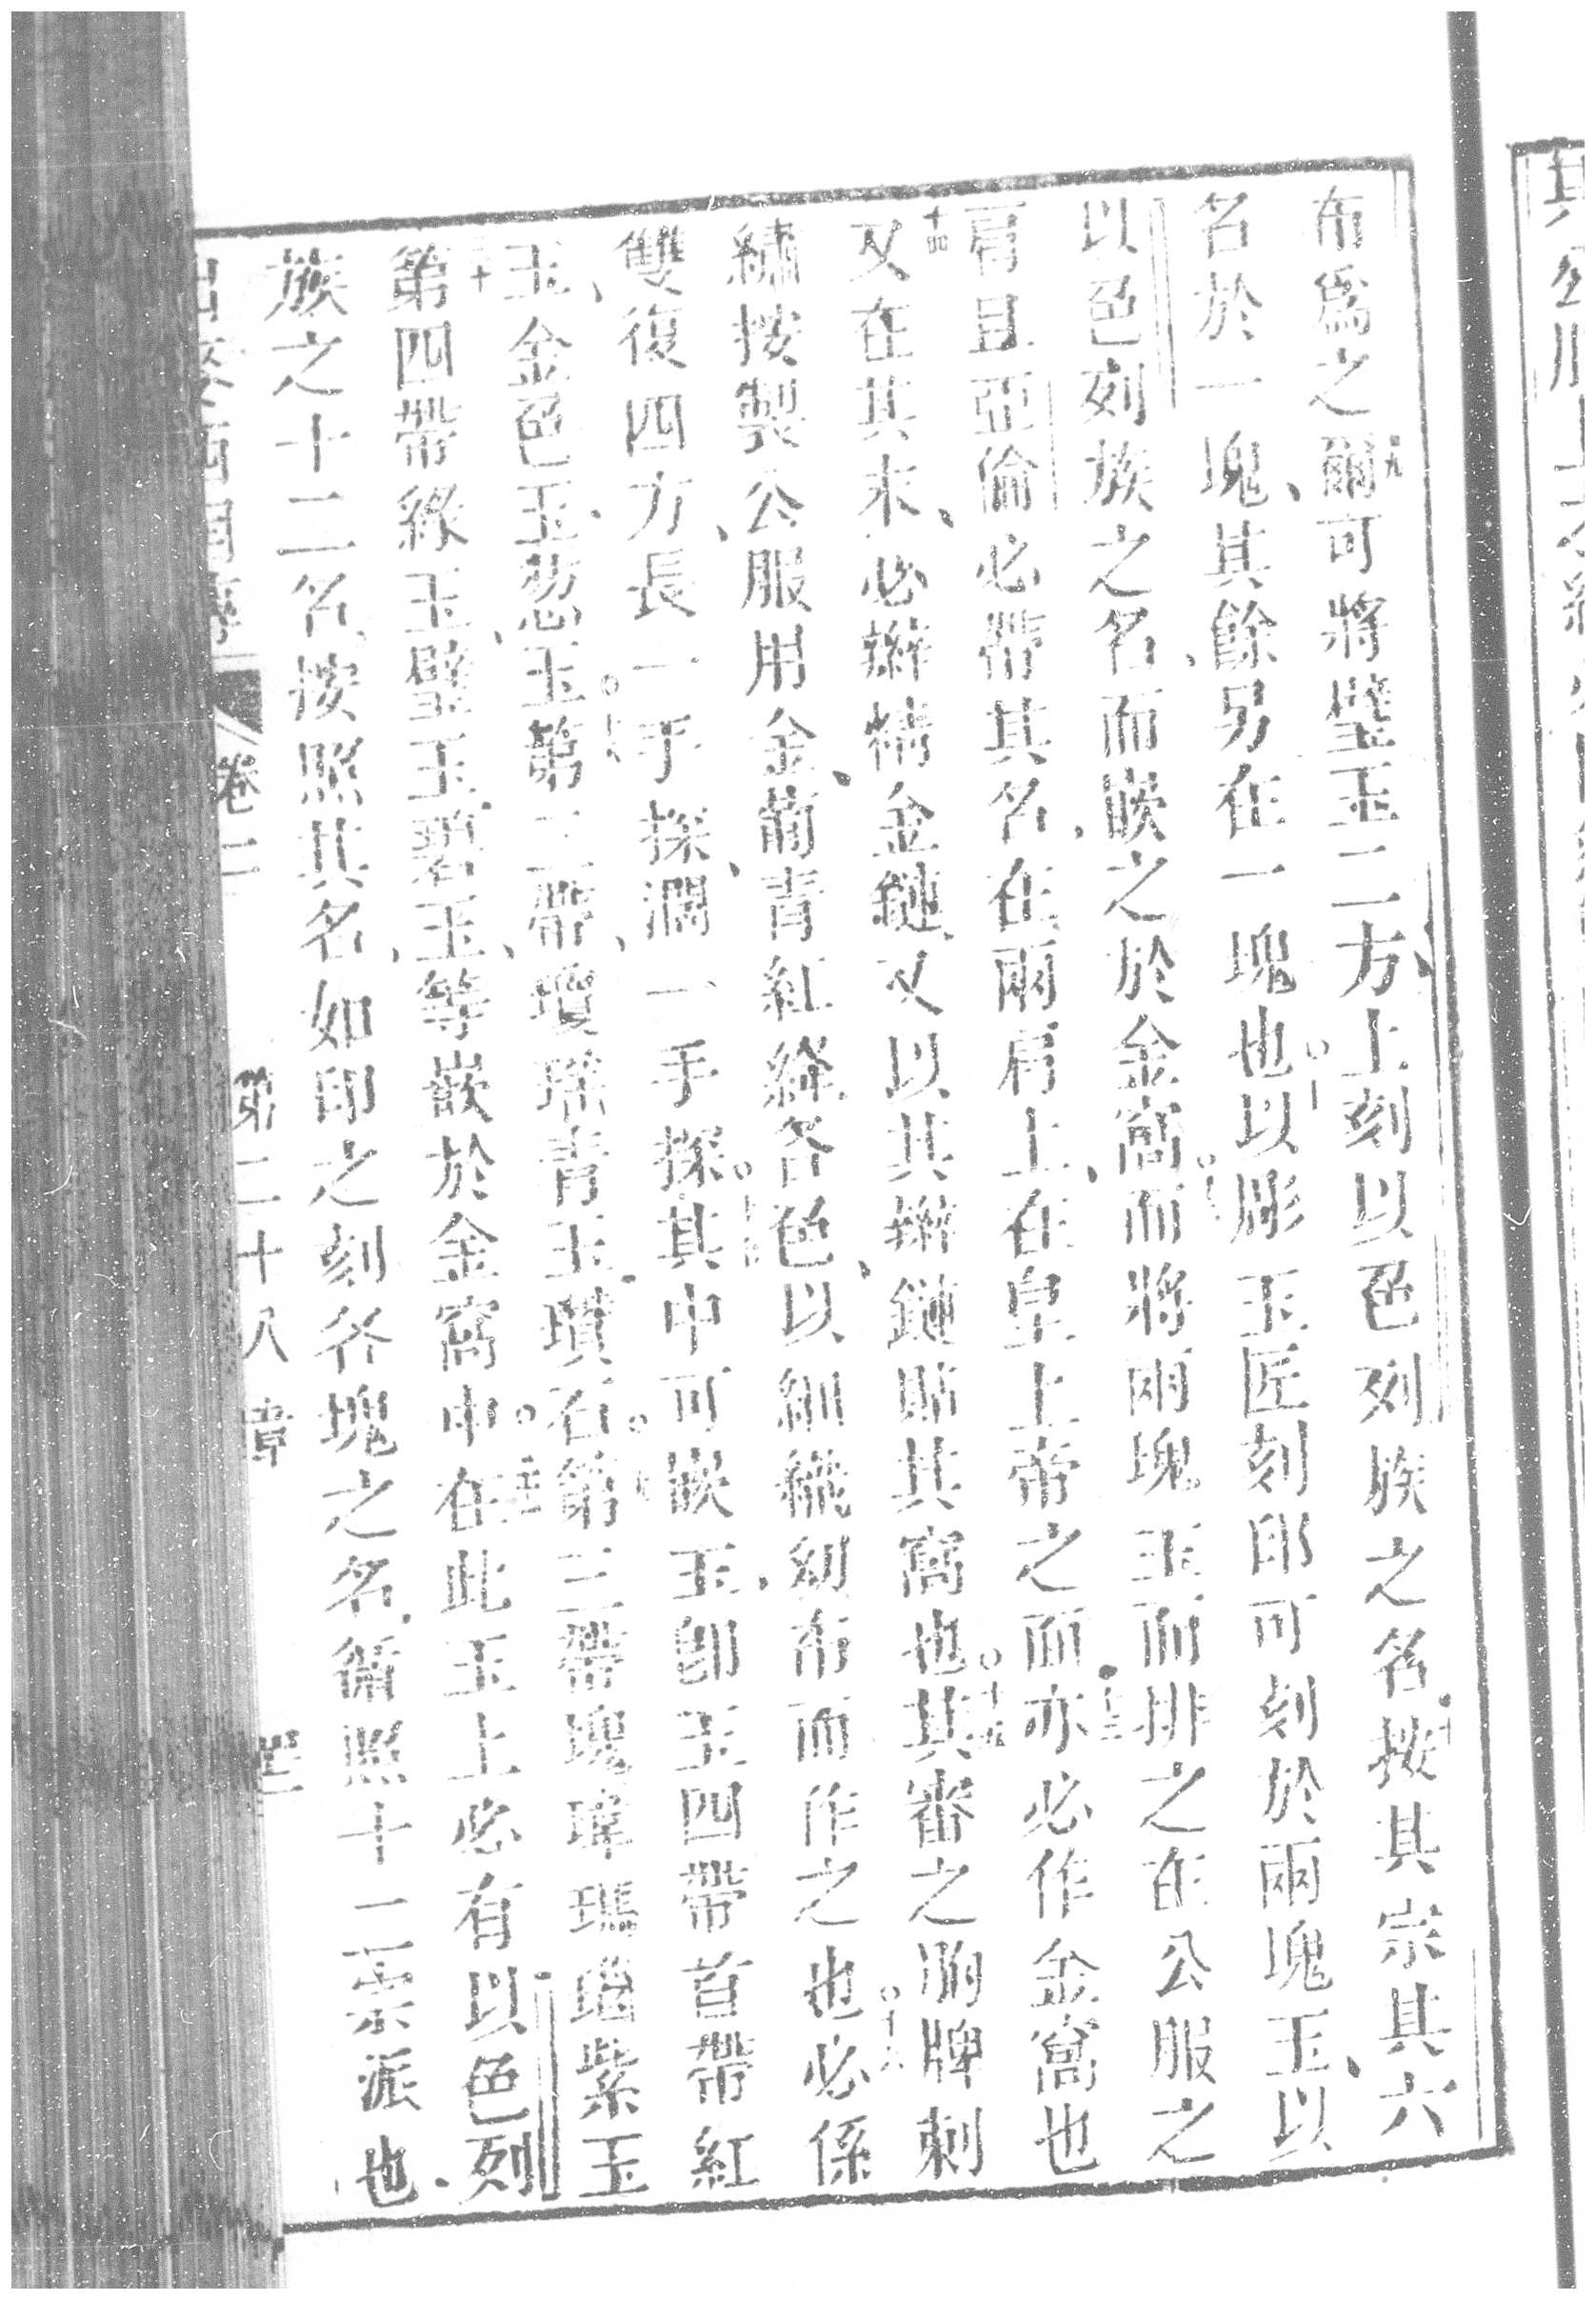 布爲之九爾可將璧玉二方上刻以色列族之名十按其宗其六
名於一塊其餘另在一塊也十一以彫玉匠刻印可刻於兩塊玉以
以色列族之名而嵌之於金窩十二而將兩塊玉而排之在公服之
肩且亞倫必帶其名在兩肩上在皇上帝之面十三亦必作金窩也
十四又在其末必辮精金鏈又以其辮鏈貼其窩也十五其審之胸牌刺
繡按製公服用金葡青紅絳各色以細織幼布而作之也十六必係
雙復四方長一手探濶一手探十七其中可嵌玉卽玉四帶首帶紅
玉金色玉葱玉十八第二帶瓊瑤青玉瓆石十九第三帶瓊瑋瑪瑙紫玉
二十第四帶綠玉璧玉碧玉等嵌於金窩中二十一在此玉上必有以色列
族之十二名按照其名如印之刻各塊之名循照十二宗派也
卷二 第二十八章